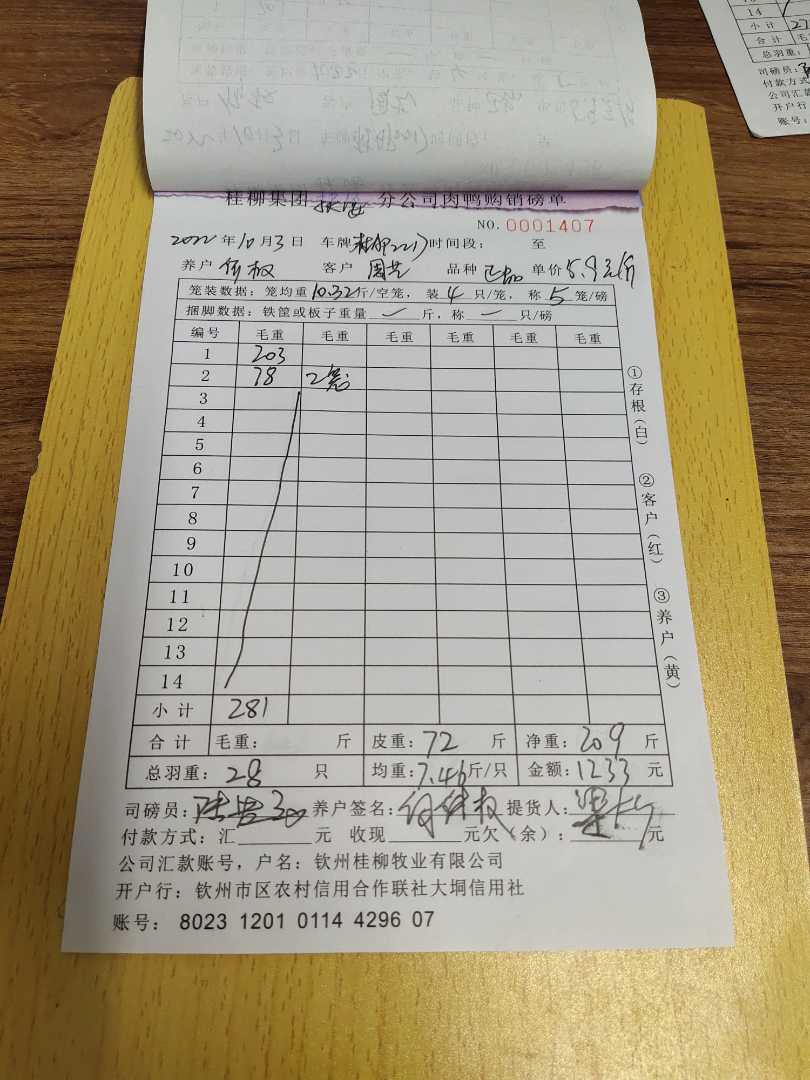 桂柳集团 钦海 分公司肉鸭购销磅单
NO. 0001407
2022 年 10 月 3 日 车牌 桂柳2217 时间段： 至
养户 权 客户 周 品种 单价 5.9元/斤
笼装数据：笼均重 10.32 斤/空笼，装 4 只/笼，称 5 笼/磅
捆脚数据：铁筐或板子重量 — 斤，称 — 只/磅
编号 毛重 毛重 毛重 毛重 毛重 毛重
1 203
2 78 2笼
3
4
5
6
7
8
9
10
11
12
13
14
小计 281
合计 毛重： 斤 皮重：72 斤 净重：209 斤
总羽重：28 只 均重：7.46 斤/只 金额：1233 元
①存根（白）
②客户（红）
③养户（黄）
司磅员： 养户签名： 权 提货人：
付款方式：汇 元 收现 元欠（余）： 元
公司汇款账号，户名：钦州桂柳牧业有限公司
开户行：钦州市区农村信用合作联社大垌信用社
账号： 8023 1201 0114 4296 07
14
小计 27
合计 毛
总羽重：
司磅员：
付款方式
公司汇款
开户行
账号：